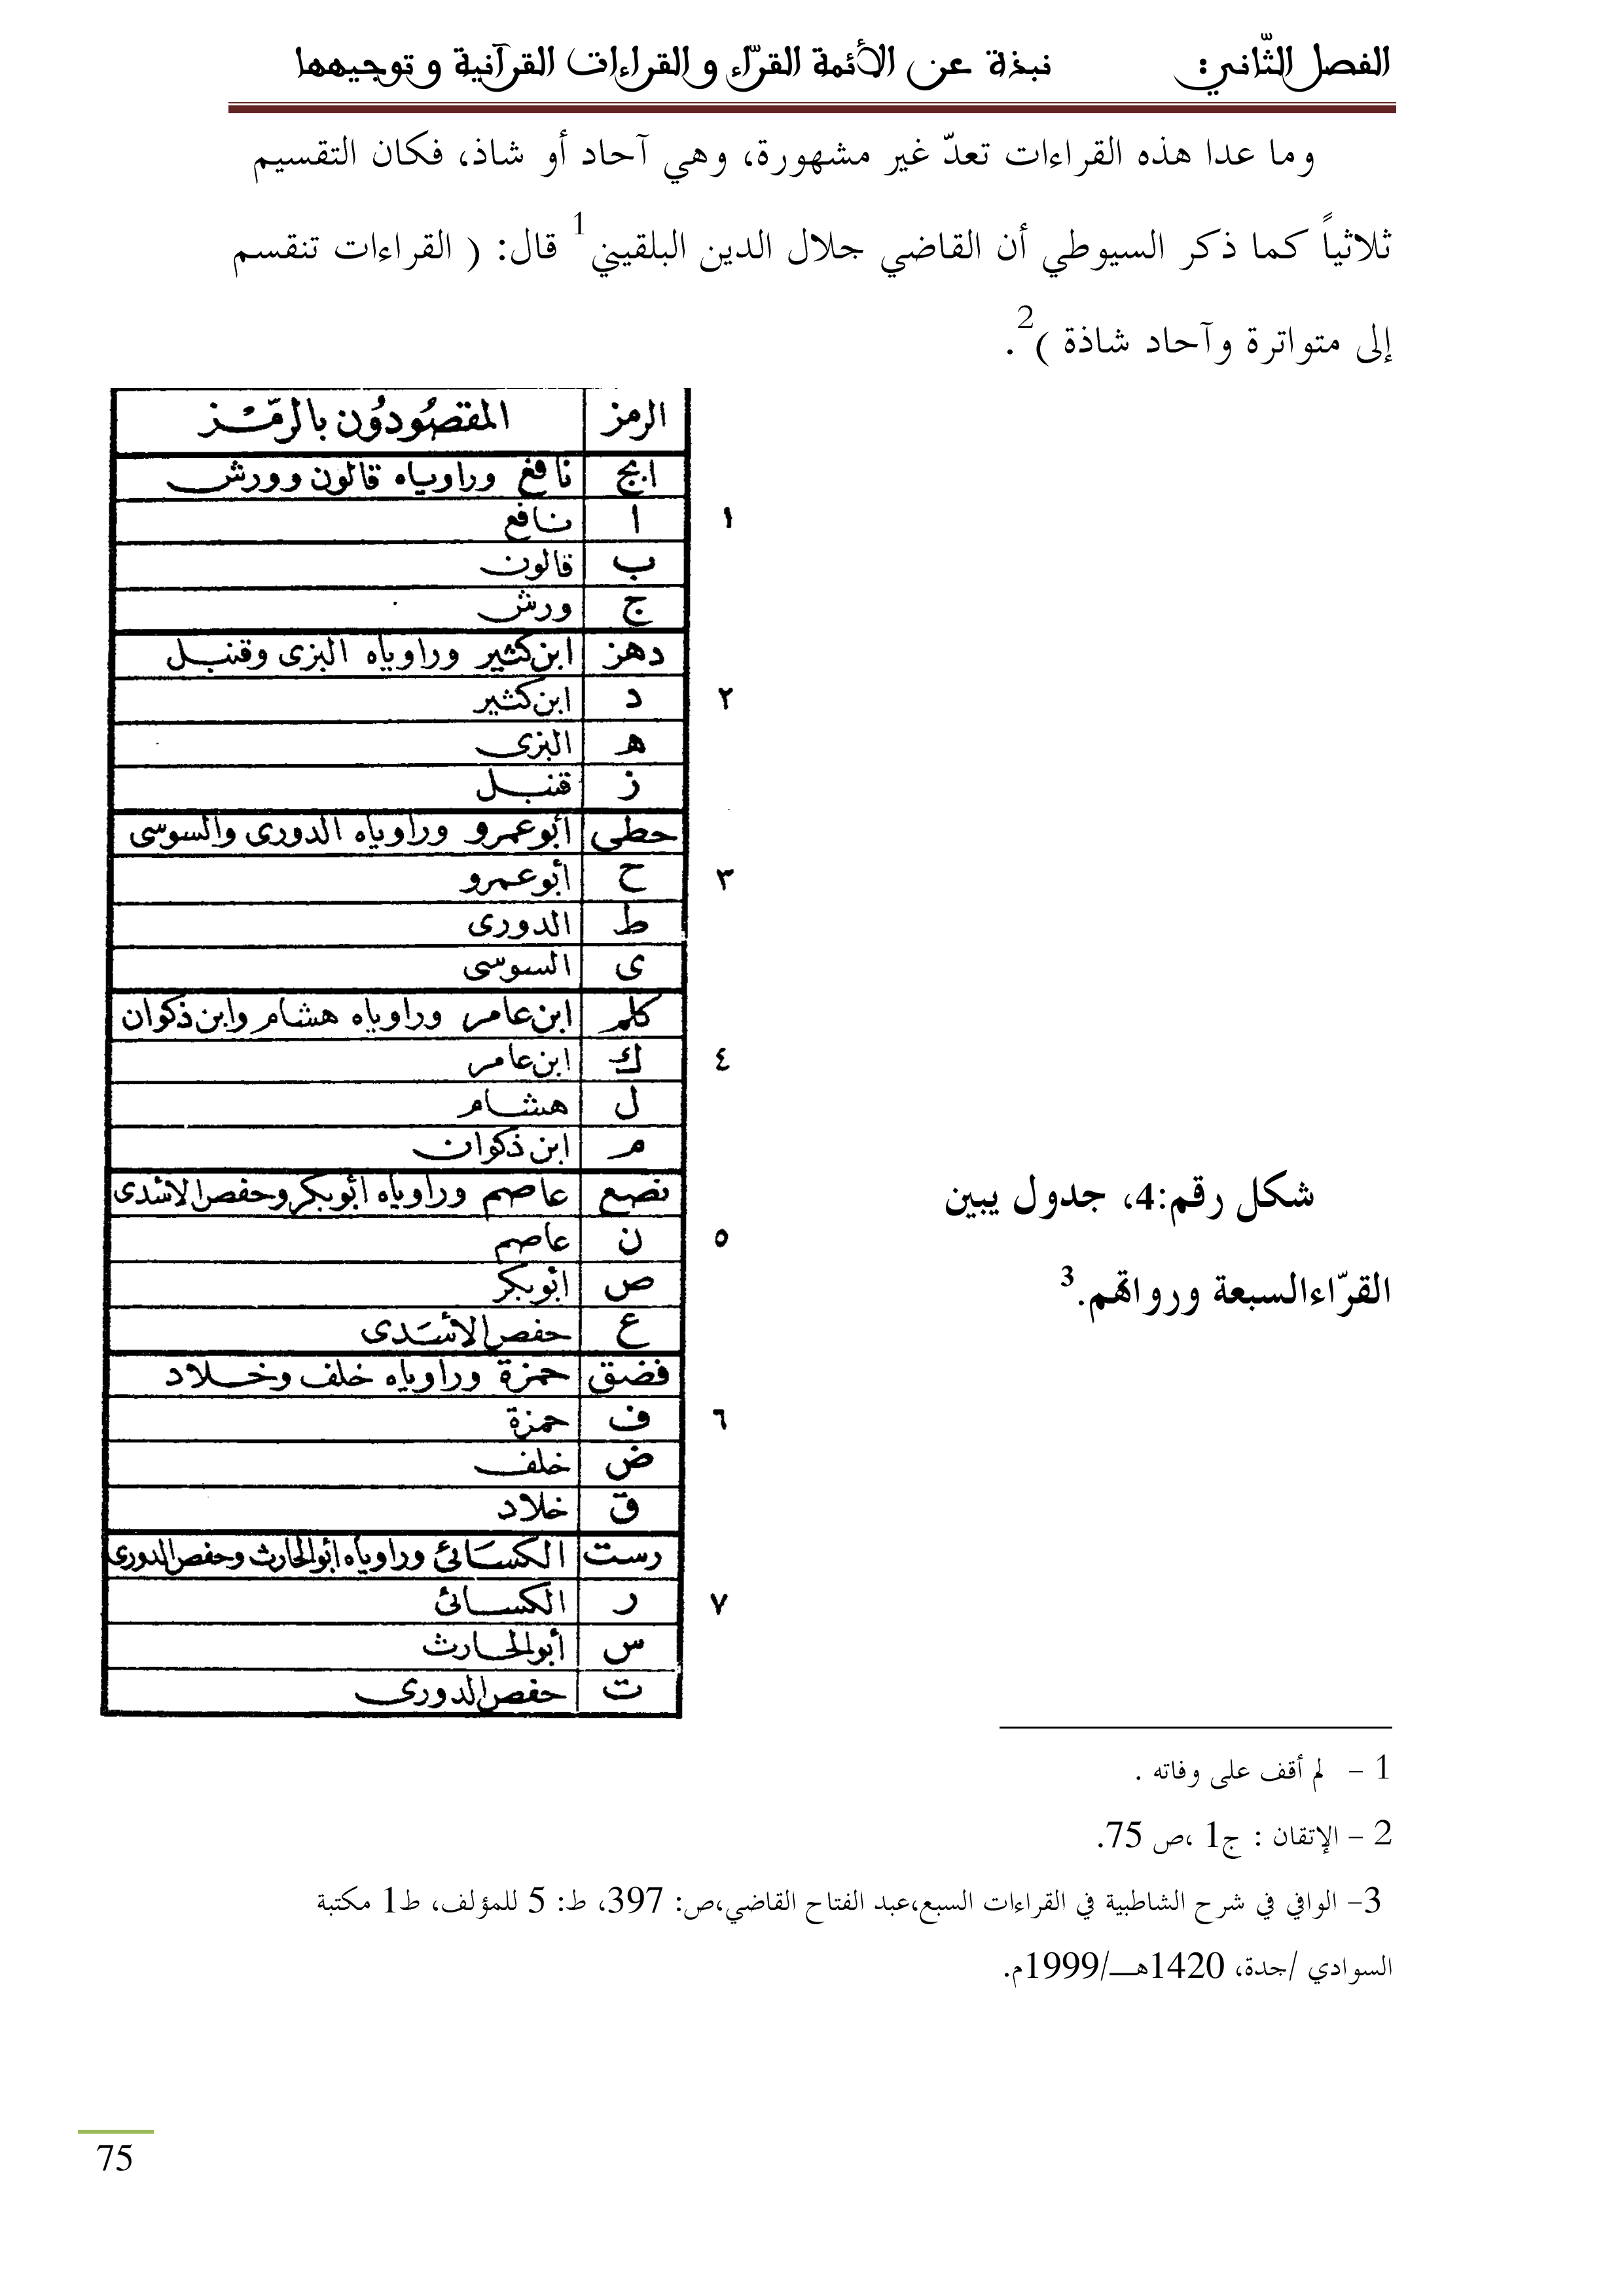 الفصل الثّاني: نبذة عن الأئمة القرّاء و القراءات القرآنية و توجيهها
وما عدا هذه القراءات تعدّ غير مشهورة، وهي آحاد أو شاذ، فكان التقسيم
ثلاثياً كما ذكر السيوطي أن القاضي جلال الدين البلقيني1 قال: ( القراءات تنقسم
إلى متواترة وآحاد شاذة )2.
الرمز المقصُودُون بالرمّز
ابج نافع وراوياه قالون وورش
١ ا نافع
ب قالون
ج ورش
دهز ابن كثير وراوياه البزى وقنبل
٢ د ابن كثير
هـ البزى
ز قنبل
حطى أبو عمرو وراوياه الدورى والسوسى
٣ ح أبو عمرو
ط الدورى
ى السوسى
كلم ابن عامر وراوياه هشام وابن ذكوان
٤ ك ابن عامر
ل هشام
م ابن ذكوان
نصع عاصم وراوياه أبوبكر وحفص الأسدى
٥ ن عاصم
ص أبوبكر
ع حفص الأسَدى
فضق حمزة وراوياه خلف وخلاد
٦ ف حمزة
ض خلف
ق خلاد
رست الكسَائى وراوياه أبوالحارث وحفص الدورى
٧ ر الكسائى
س أبوالحارث
ت حفص الدورى
شكل رقم:4، جدول يبين
القرّاءالسبعة ورواتهم.3
1 – لم أقف على وفاته .
2 – الإتقان : ج1 ،ص 75.
3– الوافي في شرح الشاطبية في القراءات السبع،عبد الفتاح القاضي،ص: 397، ط: 5 للمؤلف، ط1 مكتبة
السوادي /جدة، 1420هــ/1999م.
75